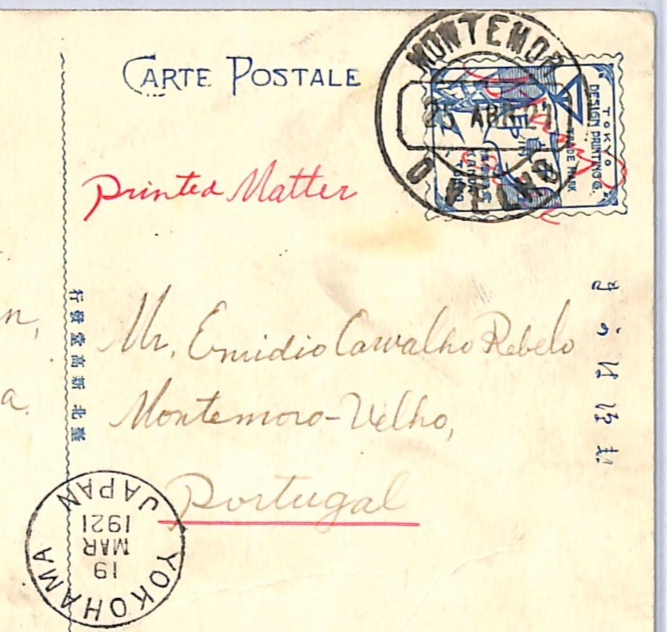 CARTE POSTALE
MONTEMOR
O VELHO
25 ABR 21
TOKYO
DESIGN PRINTING CO.
TRADE MARK
Printed Matter
Mr. Emidio Carvalho Rebelo
Montemoro-Velho,
Portugal
n,
a.
臺北新高堂發行
YOKOHAMA
19
MAR
1921
JAPAN